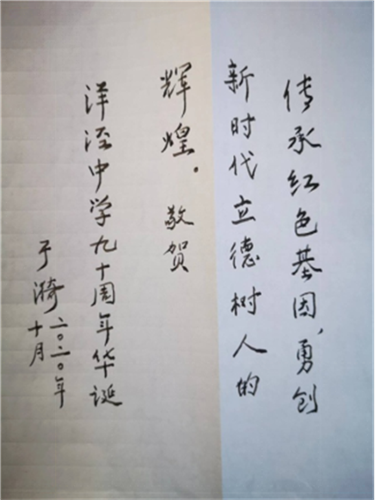 传承红色基因，勇创
新时代立德树人的
辉煌。敬贺
洋泾中学九十周年华诞
于漪
二〇二〇年
十月